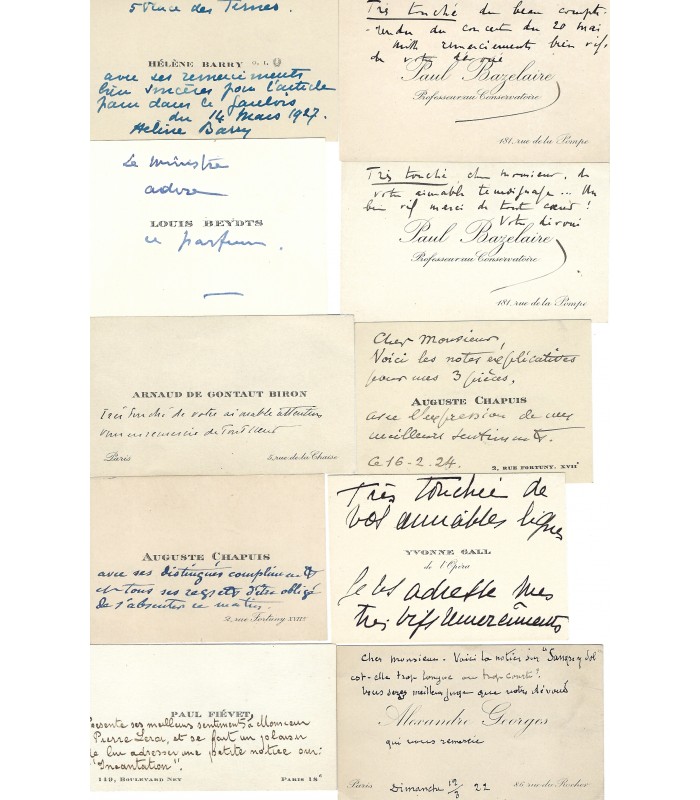 5 Place des Ternes.
HÉLÈNE BARRY
avec ses remerciments
bien sincères pour l'article
paru dans Le Gaulois
du 14 Mars 1927.
Hélène Barry
Très touché du beau compte-
-rendu du concert du 20 mai
Mille remerciements bien vifs
de votre dévoué
Paul Bazelaire
Professeur au Conservatoire
181, rue de la Pompe
Le ministre
adore
LOUIS BEYDTS
ce parfum.
Très touché, cher Monsieur, de
votre aimable témoignage... Un
bien vif merci de tout cœur!
Votre dévoué
Paul Bazelaire
Professeur au Conservatoire
181, rue de la Pompe
ARNAUD DE GONTAUT BIRON
Très touché de votre aimable attention
vous remercie de tout cœur
Paris
5, rue de la Chaise
Cher Monsieur,
Voici les notes explicatives
pour mes 3 pièces,
AUGUSTE CHAPUIS
avec l'expression de mes
meilleurs sentiments.
Ce 16-2-24.
2, RUE FORTUNY, XVIIe
AUGUSTE CHAPUIS
avec ses distingués compliments
et tous ses regrets d'être obligé
de s'absenter ce matin.
2, rue Fortuny XVIIe
Très touchée de
vos aimables lignes
YVONNE GALL
de l'Opéra
Je vs adresse mes
très vifs remerciements
PAUL FIÉVET
Présente ses meilleurs sentiments à Monsieur
Pierre Leroi, et se fait un plaisir
de lui adresser une petite notice sur:
"Incantation".
119, BOULEVARD NEY
PARIS 18e
Cher Monsieur - Voici la notice sur "Sangre y Sol"
est-elle trop longue ou trop courte?
Vous serez meilleur juge que votre dévoué
Alexandre Georges
qui vous remercie
Paris
Dimanche 19/3 22
86, rue du Rocher